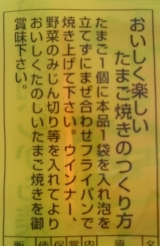 おいしく楽しい
たまご焼きのつくり方
たまご1個に本品1袋を入れ泡を
立てずにまぜ合わせフライパンで
焼き上げて下さい。ウインナー、
野菜のみじん切り等を入れてより
おいしくたのしいたまご焼きを御
賞味下さい。